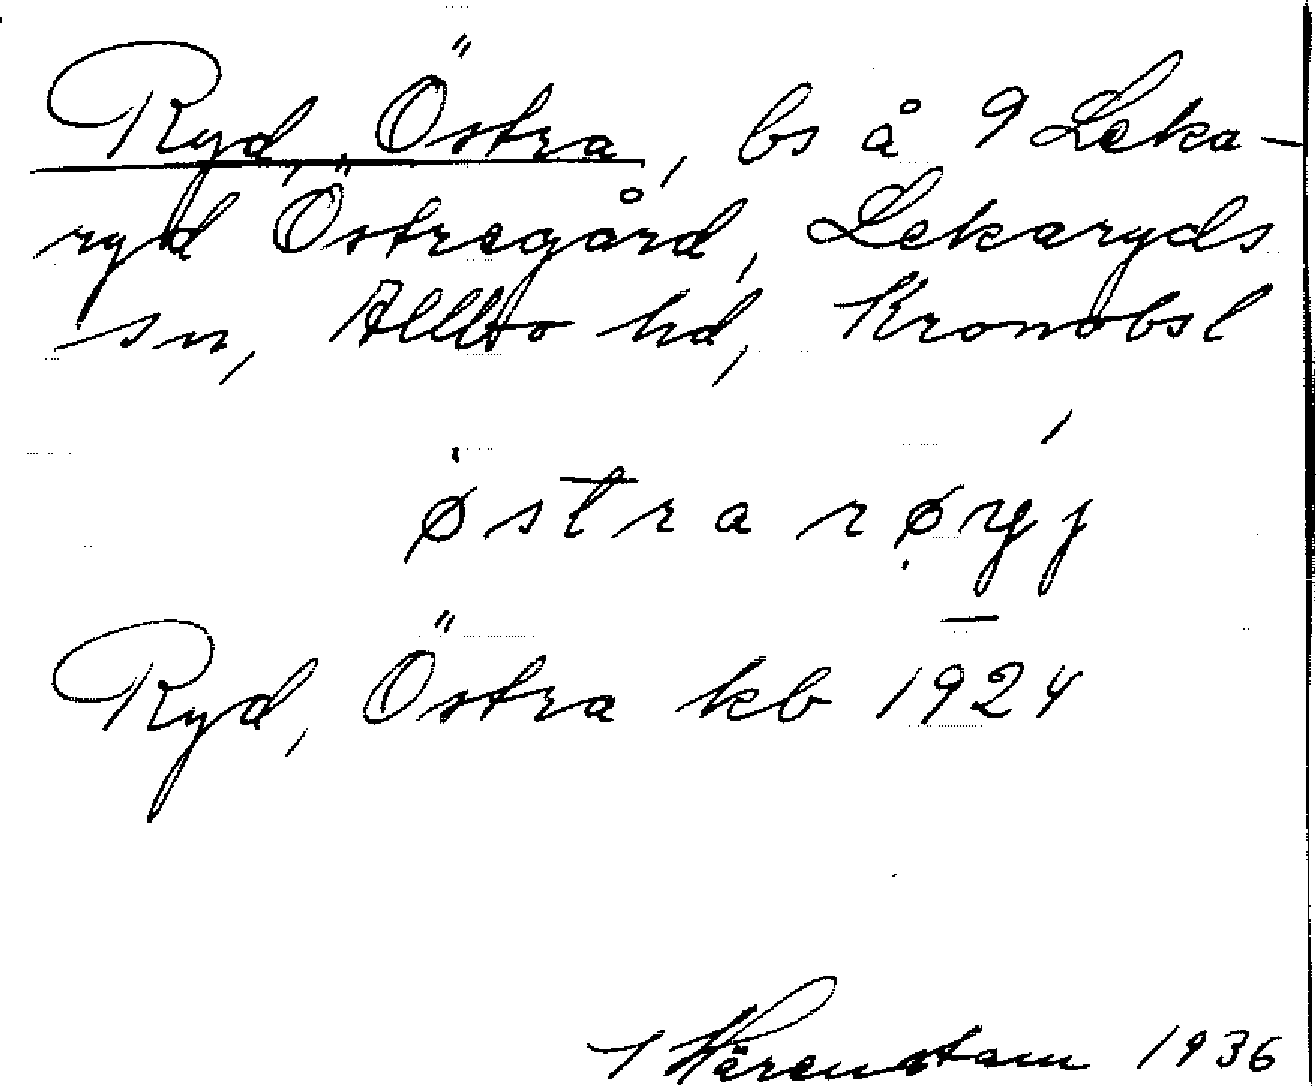 Ryd, Östra, bs å 9 Leka-
ryd Östregård, Lekaryds
sn, Allbo hd, Kronobsl
østra røyj
Ryd, Östra kb 1924
Härenstam 1936